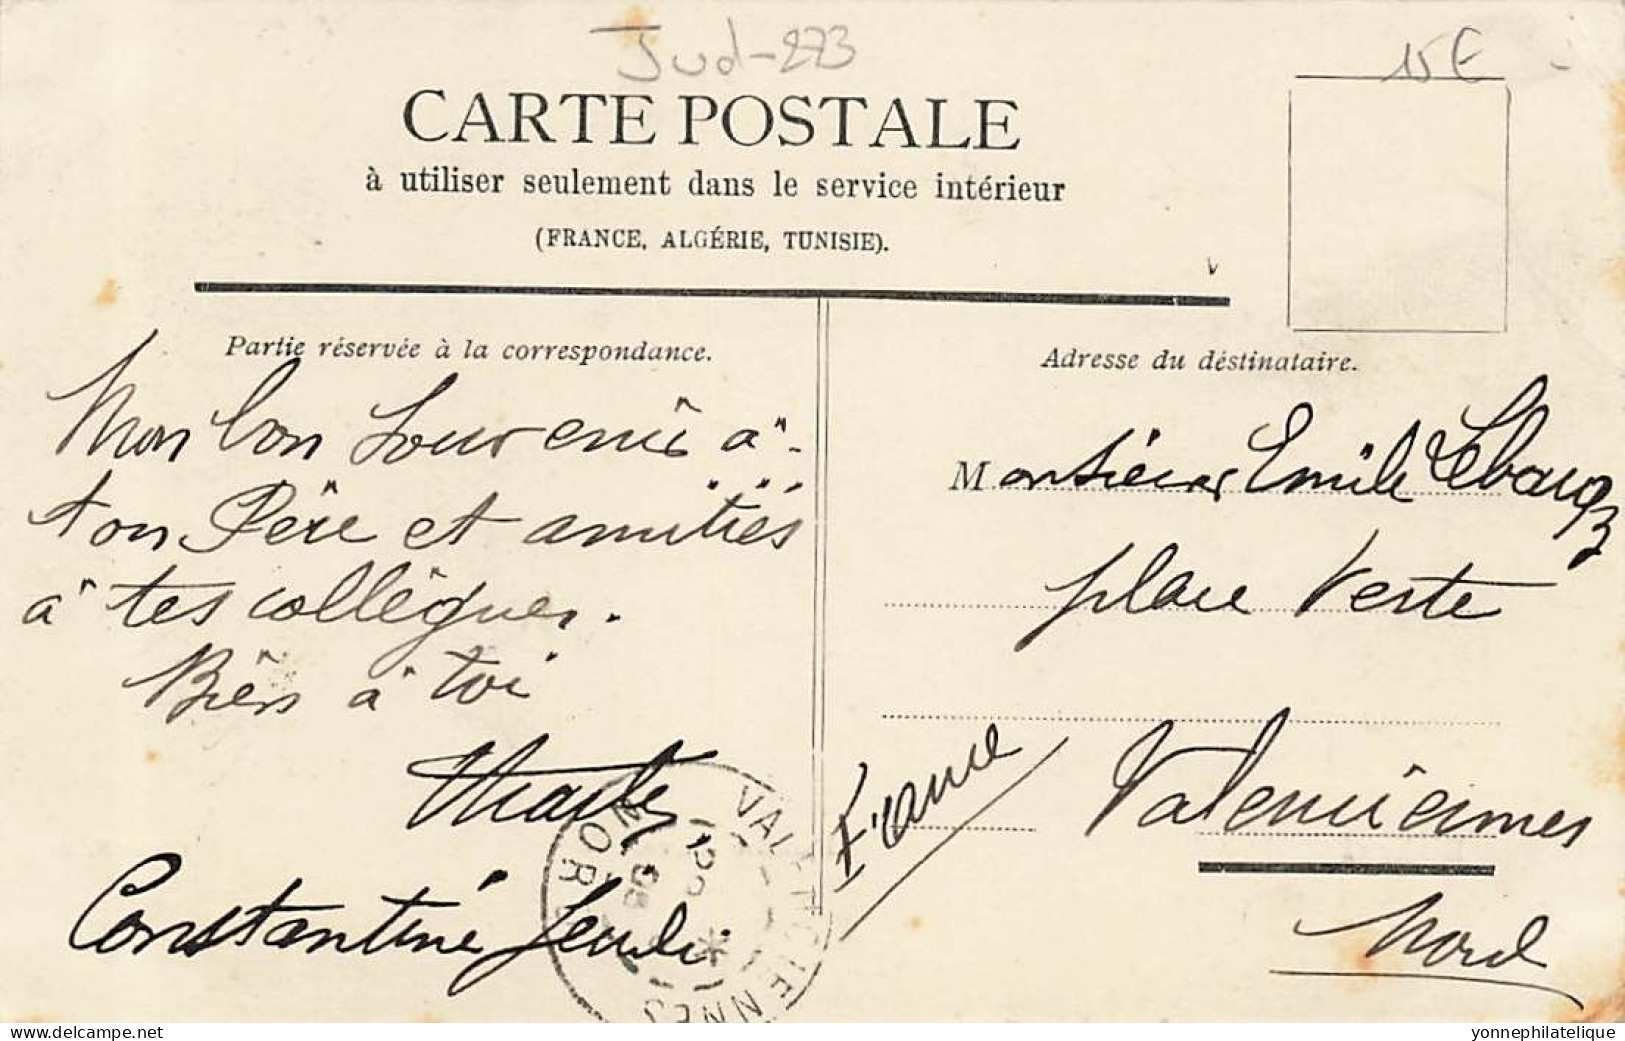 Jud-273
15 €
CARTE POSTALE
à utiliser seulement dans le service intérieur
(FRANCE, ALGÉRIE, TUNISIE).
Partie réservée à la correspondance.
Mon bon souvenir à
ton Père et amitiés
à tes collègues.
Bien à toi
Constantine Jeudi
Adresse du déstinataire.
Monsieur Emile Lebacqz
place Verte
Valenciennes
France
Nord
VALENCIENNES
NORD
yonnephilatelique